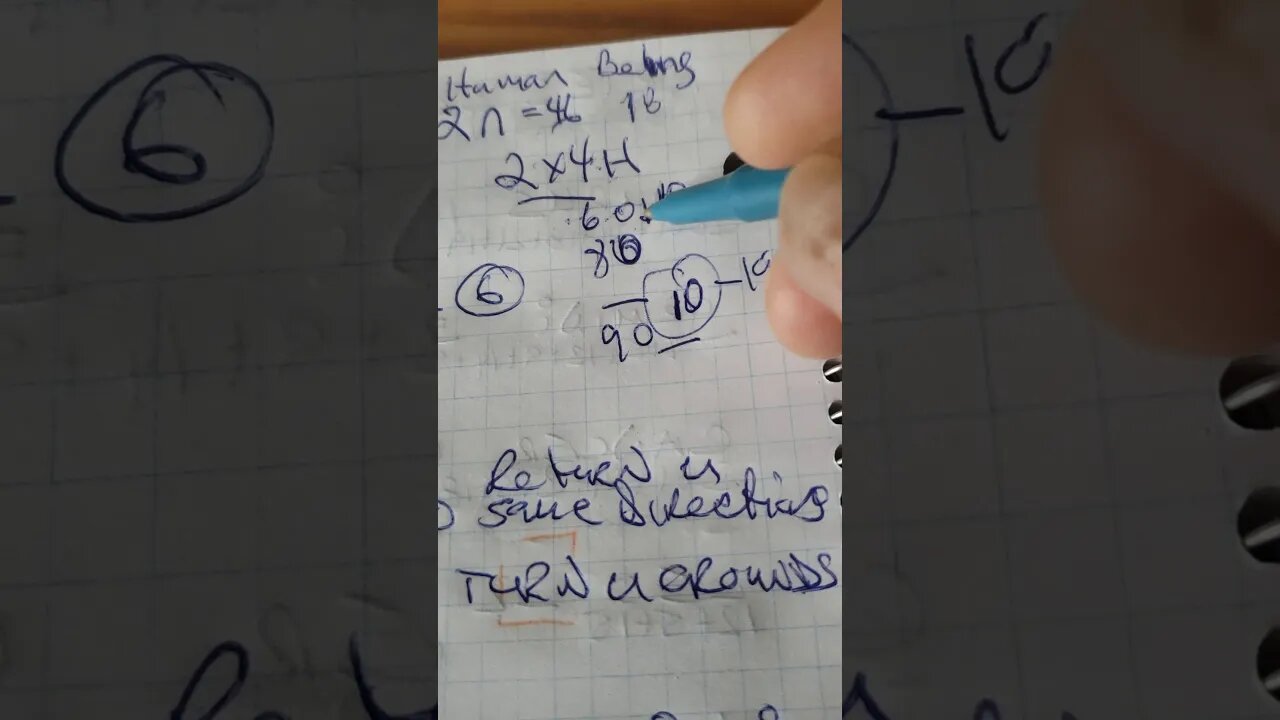 Human Being
2n = 46 1B
2 x 4.H
6.0
80
6
10 - 10
90
Return u
same directing
TURN u GROUNDS